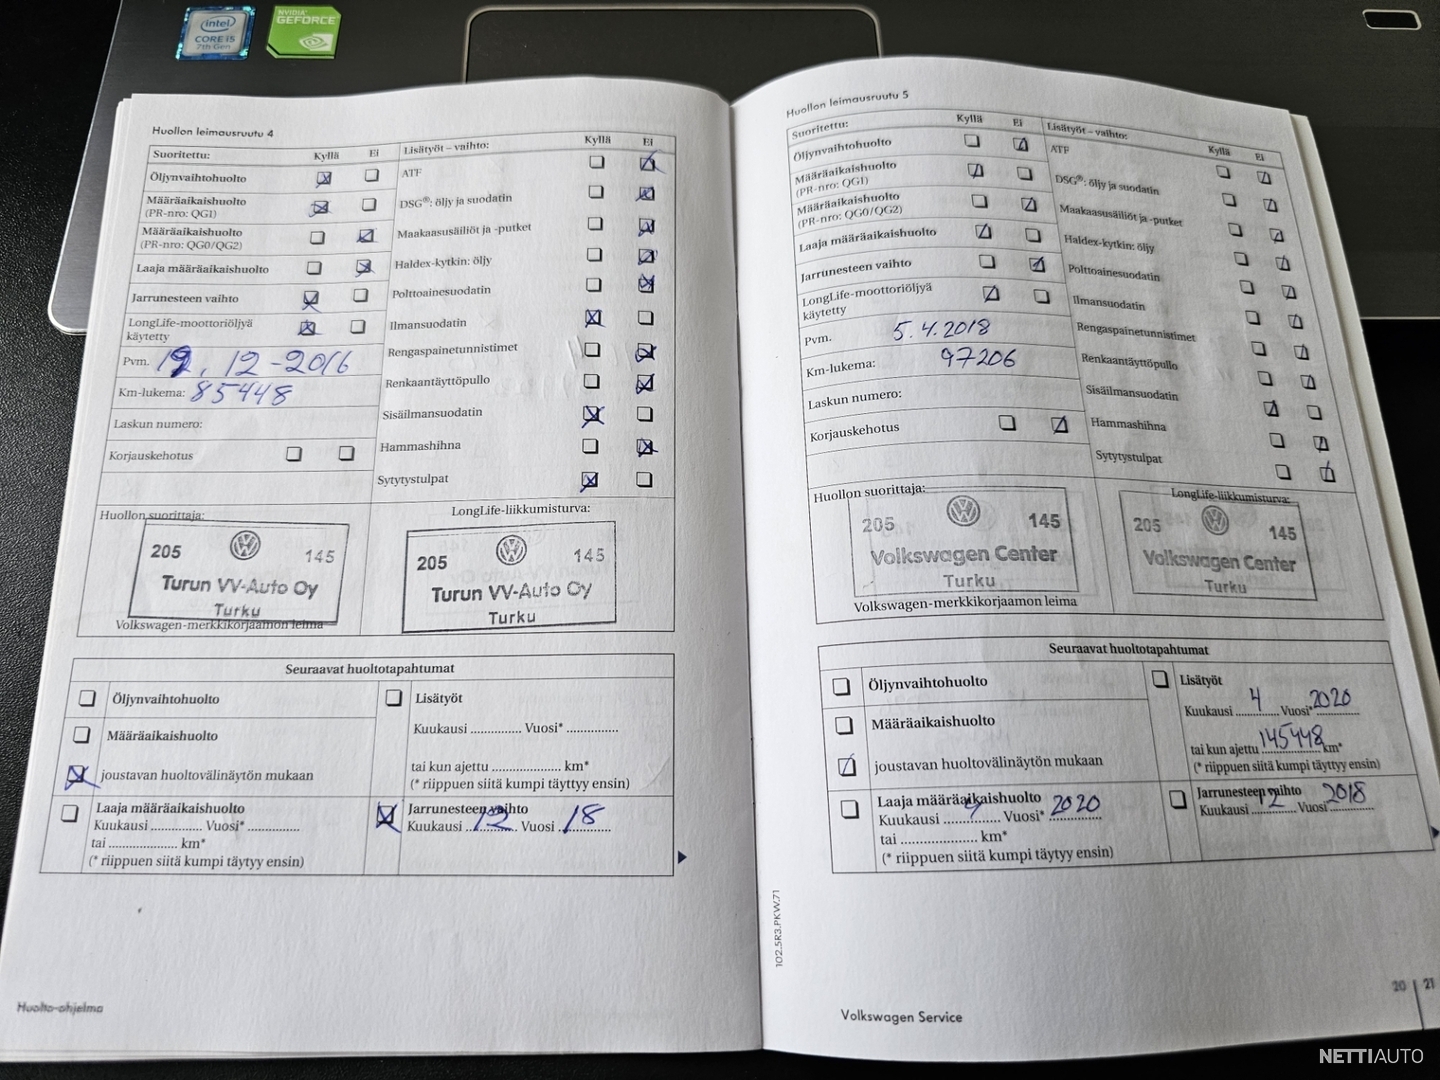 intel
CORE i5
7th Gen
NVIDIA
GEFORCE
Huollon leimausruutu 4
Suoritettu: Kyllä Ei
Öljynvaihtohuolto
Määräaikaishuolto
(PR-nro: QG1)
Määräaikaishuolto
(PR-nro: QG0/QG2)
Laaja määräaikaishuolto
Jarrunesteen vaihto
LongLife-moottoriöljyä
käytetty
Pvm. 12-2016
Km-lukema: 85448
Laskun numero:
Korjauskehotus
Lisätyöt – vaihto: Kyllä Ei
ATF
DSG®: öljy ja suodatin
Maakaasusäiliöt ja -putket
Haldex-kytkin: öljy
Polttoainesuodatin
Ilmansuodatin
Rengaspainetunnistimet
Renkaantäyttöpullo
Sisäilmansuodatin
Hammashihna
Sytytystulpat
Huollon suorittaja:
205 145
Turun VV-Auto Oy
Turku
Volkswagen-merkkikorjaamon leima
LongLife-liikkumisturva:
205 145
Turun VV-Auto Oy
Turku
Seuraavat huoltotapahtumat
Öljynvaihtohuolto
Määräaikaishuolto
joustavan huoltovälinäytön mukaan
Lisätyöt
Kuukausi ............... Vuosi* ...............
tai kun ajettu .................... km*
(* riippuen siitä kumpi täyttyy ensin)
Laaja määräaikaishuolto
Kuukausi ............... Vuosi* ...............
tai .................... km*
(* riippuen siitä kumpi täytyy ensin)
Jarrunesteen vaihto
Kuukausi 12 Vuosi 18
Huolto-ohjelma
Huollon leimausruutu 5
Suoritettu: Kyllä Ei
Öljynvaihtohuolto
Määräaikaishuolto
(PR-nro: QG1)
Määräaikaishuolto
(PR-nro: QG0/QG2)
Laaja määräaikaishuolto
Jarrunesteen vaihto
LongLife-moottoriöljyä
käytetty
Pvm. 5.4.2018
Km-lukema: 97206
Laskun numero:
Korjauskehotus
Lisätyöt – vaihto: Kyllä Ei
ATF
DSG®: öljy ja suodatin
Maakaasusäiliöt ja -putket
Haldex-kytkin: öljy
Polttoainesuodatin
Ilmansuodatin
Rengaspainetunnistimet
Renkaantäyttöpullo
Sisäilmansuodatin
Hammashihna
Sytytystulpat
Huollon suorittaja:
205 145
Volkswagen Center
Turku
Volkswagen-merkkikorjaamon leima
LongLife-liikkumisturva:
205 145
Volkswagen Center
Turku
Seuraavat huoltotapahtumat
Öljynvaihtohuolto
Määräaikaishuolto
joustavan huoltovälinäytön mukaan
Lisätyöt
Kuukausi 4 Vuosi* 2020
tai kun ajettu 145448 km*
(* riippuen siitä kumpi täyttyy ensin)
Laaja määräaikaishuolto
Kuukausi 4 Vuosi* 2020
tai .................... km*
(* riippuen siitä kumpi täytyy ensin)
Jarrunesteen vaihto
Kuukausi 12 Vuosi 2018
102.5R3.PKW.71
Volkswagen Service
20 | 21
NETTIAUTO